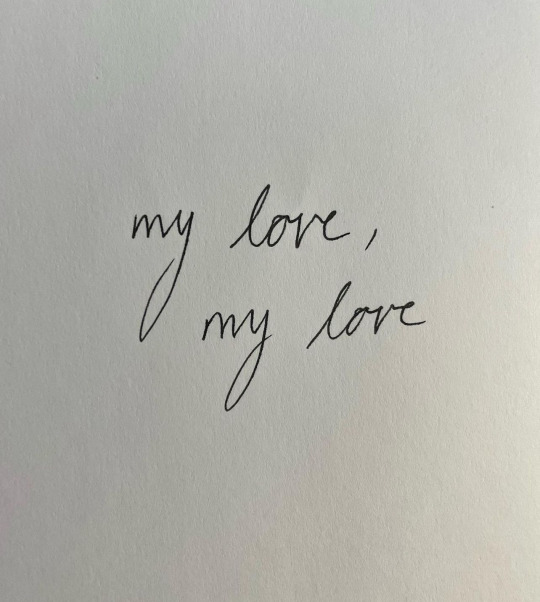 my love,
my love